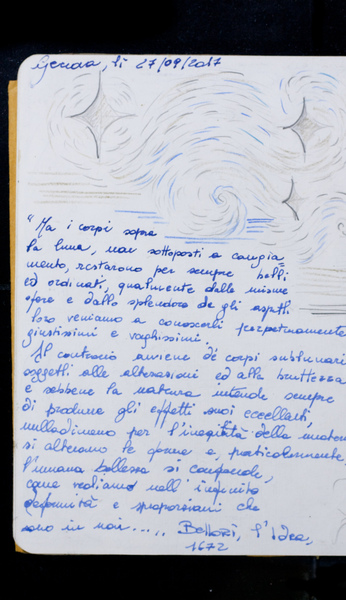 Genova, lì 27/09/2017
"Ma i corpi sopra
la luna, non sottoposti a cangia
mento, restarono per sempre belli
ed ordinati, qualmente dalle misure
sfere e dallo splendore de gli aspetti
loro veniamo a conoscerli perpetuamente
giustissimi e vaghissimi.
Al contrario aviene de' corpi sublunari
soggetti alle alterazioni ed alla bruttezza
e sebbene la natura intende sempre
di produrre gli effetti suoi eccellenti,
nulladimeno per l'inequità della materia
si alterano le forme e, particolarmente,
l'umana bellezza si confonde,
come vediamo nell'infinite
deformità e sproporzioni che
sono in noi..... Bellori, l'Idea,
1672